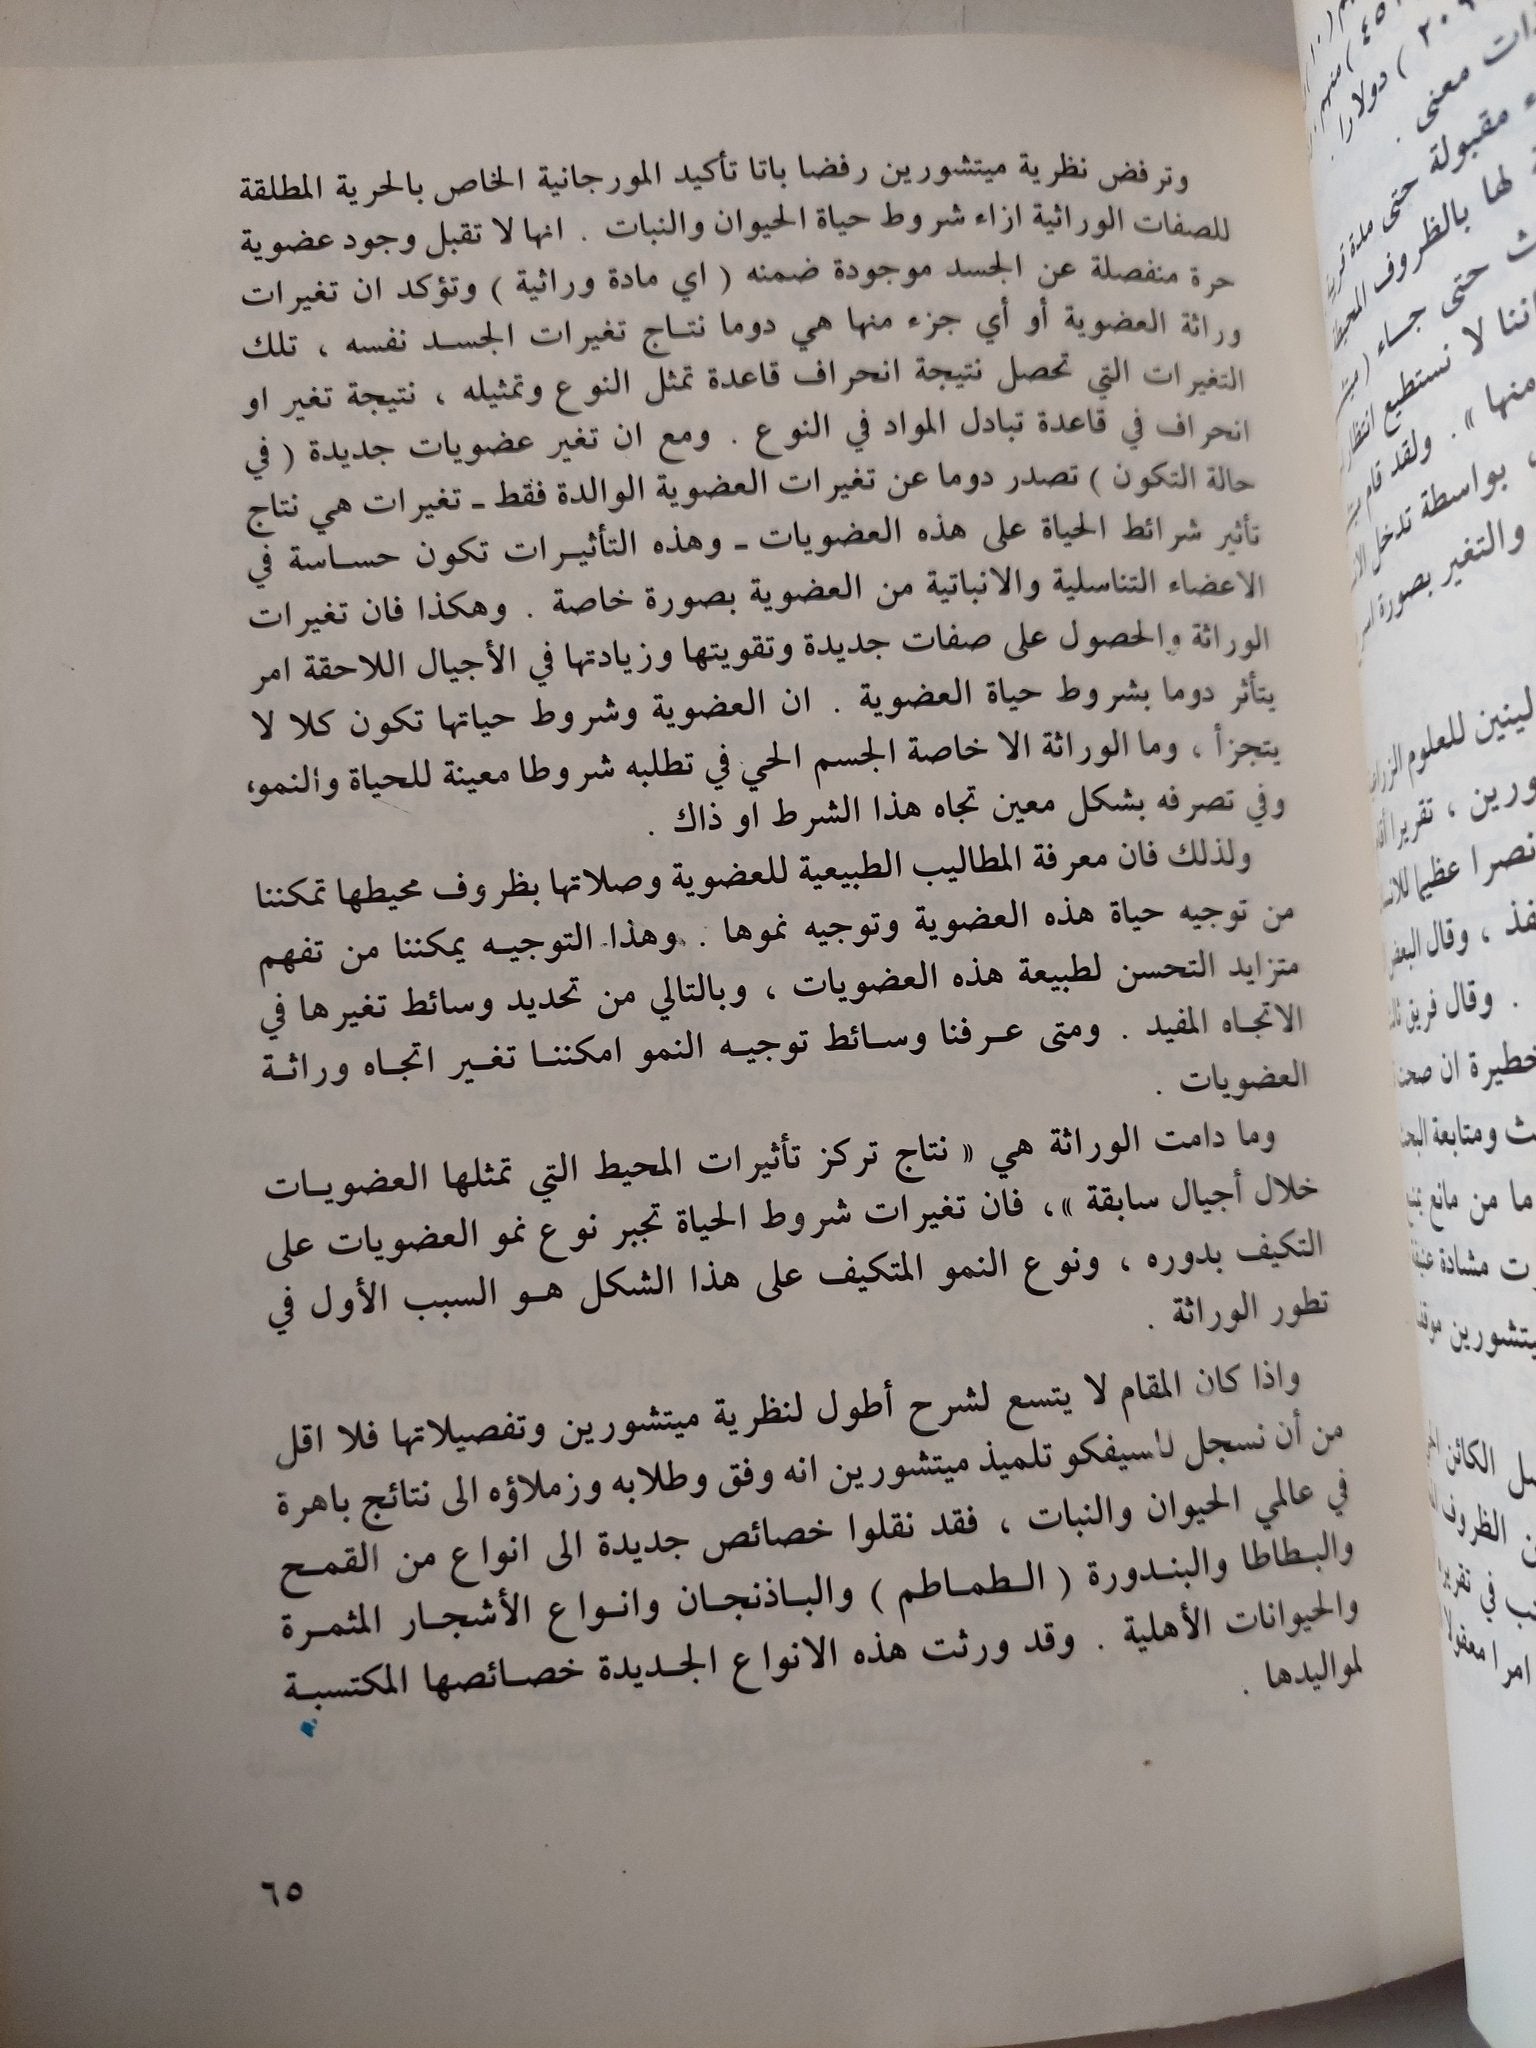 وترفض نظرية ميتشورين رفضا باتا تأكيد المورجانية الخاص بالحرية المطلقة
للصفات الوراثية ازاء شروط حياة الحيوان والنبات . انها لا تقبل وجود عضوية
حرة منفصلة عن الجسد موجودة ضمنه ( اي مادة وراثية ) وتؤكد ان تغيرات
وراثة العضوية أو أي جزء منها هي دوما نتاج تغيرات الجسد نفسه ، تلك
التغيرات التي تحصل نتيجة انحراف قاعدة تمثل النوع وتمثيله ، نتيجة تغير او
انحراف في قاعدة تبادل المواد في النوع . ومع ان تغير عضويات جديدة ( في
حالة التكون ) تصدر دوما عن تغيرات العضوية الوالدة فقط ـ تغيرات هي نتاج
تأثير شرائط الحياة على هذه العضويات ـ وهذه التأثيرات تكون حساسة في
الاعضاء التناسلية والانباتية من العضوية بصورة خاصة . وهكذا فان تغيرات
الوراثة والحصول على صفات جديدة وتقويتها وزيادتها في الأجيال اللاحقة امر
يتأثر دوما بشروط حياة العضوية . ان العضوية وشروط حياتها تكون كلا لا
يتجزأ ، وما الوراثة الا خاصة الجسم الحي في تطلبه شروطا معينة للحياة والنمو،
وفي تصرفه بشكل معين تجاه هذا الشرط او ذاك .
ولذلك فان معرفة المطاليب الطبيعية للعضوية وصلاتها بظروف محيطها تمكننا
من توجيه حياة هذه العضوية وتوجيه نموها . وهذا التوجيه يمكننا من تفهم
متزايد التحسن لطبيعة هذه العضويات ، وبالتالي من تحديد وسائط تغيرها في
الاتجاه المفيد . ومتى عرفنا وسائط توجيه النمو امكننا تغير اتجاه وراثة
العضويات .
وما دامت الوراثة هي « نتاج تركز تأثيرات المحيط التي تمثلها العضويات
خلال أجيال سابقة »، فان تغيرات شروط الحياة تجبر نوع نمو العضويات على
التكيف بدوره ، ونوع النمو المتكيف على هذا الشكل هو السبب الأول في
تطور الوراثة .
واذا كان المقام لا يتسع لشرح أطول لنظرية ميتشورين وتفصيلاتها فلا اقل
من أن نسجل تلميذ ميتشورين انه وفق وطلابه وزملاؤه الى نتائج باهرة
في عالمي الحيوان والنبات ، فقد نقلوا خصائص جديدة الى انواع من القمح
والبطاطا والبندورة ( الطماطم ) والباذنجان وانواع الأشجار المثمرة
والحيوانات الأهلية . وقد ورثت هذه الانواع الجديدة خصائصها المكتسبة
لمواليدها .
٦٥
دولارا .
ذات معنى .
مقبولة حتى مدة
لها بالظروف
حتى جاء
اننا لا نستطيع
منها » . ولقد قام
، بواسطة تدخل
والتغير بصورة
لينين للعلوم
، تقريرا
نصرا عظيما
، وقال البعض
. وقال فريق
خطيرة ان
ومتابعة
ما من مانع
مشادة
ميتشورين
الكائن
الظروف
في
امرا معقولا